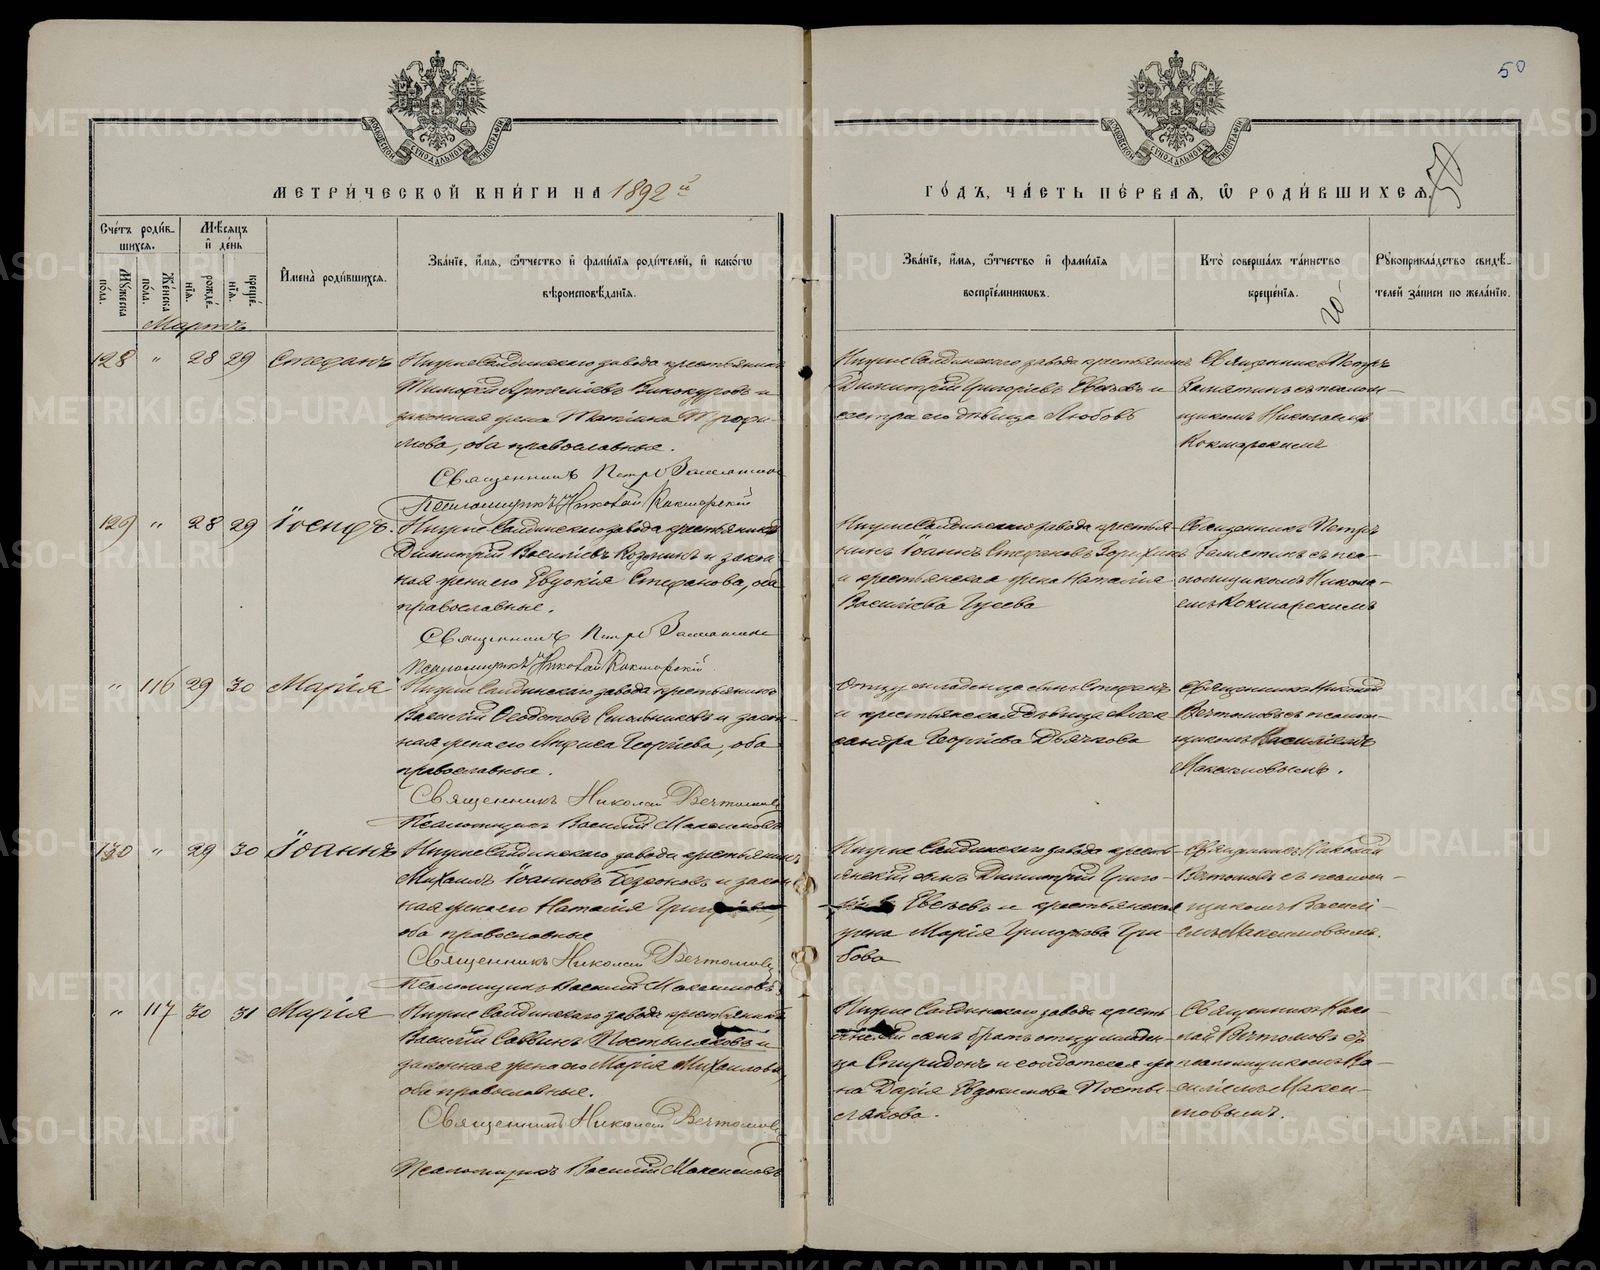 50
МОСКОВСКОЙ СѴНОДАЛЬНОЙ ТИПОГРАФІИ
МОСКОВСКОЙ СѴНОДАЛЬНОЙ ТИПОГРАФІИ
МЕТРИ́ЧЕСКОЙ КНИ́ГИ НА 1892й
ГО́ДЪ, ЧА́СТЬ ПЕ́РВАѦ, Ѡ҆ РОДИ́ВШИХСѦ.
50
Сче́тъ роди́в-
шихсѧ.
Мꙋ́жеска по́ла.
Же́нска по́ла.
Мѣ́сѧцъ
и҆ де́нь
рожде́-
нїѧ.
креще́-
нїѧ.
И҆мена̀ роди́вшихсѧ.
Зва́нїе, и҆́мѧ, ѻ҆́тчество и҆ фами́лїѧ роди́телей, и҆ како́гѡ
вѣроисповѣ́данїѧ.
Зва́нїе, и҆́мѧ, ѻ҆́тчество и҆ фами́лїѧ
воспрїе́мниковъ.
Кто̀ соверша́лъ та́инство
креще́нїѧ.
Рꙋкоприкла́дство свидѣ́-
телей за́писи по жела́нїю.
Мартъ
128 " 28 29 Стефанъ
Нижнесалдинскаго завода крестьянинъ
Тимофей Артемiевъ Винокуровъ и
законная жена Татiана Трофи-
мова, оба православные.
Священникъ Петръ Замятинъ
Псаломщикъ Николай Кокшарскiй
Нижнесалдинскаго завода крестьянинъ
Димитрiй Григорiевъ Евсѣевъ и
сестра его дѣвица Любовь
Священникъ Петръ
Замятинъ съ псалом-
щикомъ Николаемъ
Кокшарскимъ
129 " 28 29 Iосифъ.
Нижнесалдинскаго завода крестьянинъ
Димитрiй Василiевъ и закон-
ная жена его Евдокiя Стефанова, оба
православные.
Священникъ Петръ Замятинъ
Псаломщикъ Николай Кокшарскiй
Нижнесалдинскаго завода крестья-
нинъ Iоаннъ Стефановъ Зорихинъ
и крестьянская жена Наталiя
Василiева Гусева
Священникъ Петръ
Замятинъ съ пса-
ломщикомъ Никола-
емъ Кокшарскимъ
" 116 29 30 Марiя
Нижнесалдинскаго завода крестьянинъ
Василiй Ѳеодотовъ и закон-
ная жена его Анфиса Георгiева, оба
православные.
Священникъ Николай Вечтомовъ
Псаломщикъ Василiй Максимовъ
Отцу младенца сынъ Стефанъ
и крестьянская дѣвица Алек
сандра Георгiева Дьячкова
Священникъ Николай
Вечтомовъ съ псалом-
щикомъ Василiемъ
Максимовымъ.
130 " 29 30 Iоаннъ
Нижнесалдинскаго завода крестьянинъ
Михаилъ Iоанновъ и закон
ная жена его Наталiя
оба православные
Священникъ Николай Вечтомовъ
Псаломщикъ Василiй Максимовъ
Нижнесалдинскаго завода кресть-
янскiй сынъ Димитрiй Григо-
Евсѣевъ и крестьянская
жена Марiя Григорьева Гри-
бова
Священникъ Николай
Вечтомовъ съ псалом-
щикомъ Василi-
емъ Максимовымъ.
" 117 30 31 Марiя
Нижнесалдинскаго завода крестьянинъ
Василiй Саввинъ Постыляковъ и
законная жена его Марiя Михаилова,
оба православные.
Священникъ Николай Вечтомовъ
Псаломщикъ Василiй Максимовъ
Нижнесалдинскаго завода кресть
янскiй сынъ братъ отцу младен-
ца Спиридонъ и солдатская же
на Дарiя Евдокимова Посты-
лякова.
Священникъ Нико-
лай Вечтомовъ съ
псаломщикомъ Ва-
силiемъ Макси-
мовымъ.
METRIKI.GASO-URAL.RU